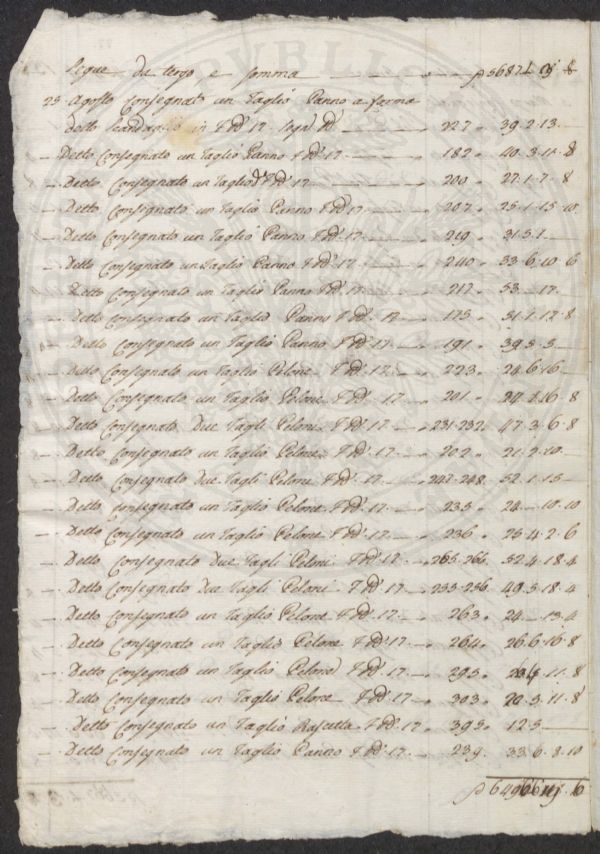 Segue da tergo e somma
25 Agosto Consegnat un Taglio Panno a forma
detto in 17 227 39.2.13
Detto Consegnato un Taglio Panno 17 182 40.3.11.8
Detto Consegnato un Taglio 17 200 27.1.7.8
Detto Consegnato un Taglio Panno 17 207 25.1.15.10
Detto Consegnato un Taglio Panno 17 219 31.5.1
Detto Consegnato un Taglio Panno 17 240 33.6.10.6
Detto Consegnato un Taglio Panno 17 217 53.17
Detto Consegnato un Taglio Panno 17 175 31.1.17.8
Detto Consegnato un Taglio Panno 17 191 39.3.3
Detto Consegnato un Taglio Pelone 17 223 24.6.16
Detto Consegnato un Taglio Pelone 17 201
Detto Consegnato Due Tagli Peloni 17 231.232 47.3.6.8
Detto Consegnato un Taglio Pelone 17 202 21.2.10
Detto Consegnato Due Tagli Pelone 17 247.248 52.1.15
Detto Consegnato un Taglio Pelone 17 235 24.10.10
Detto Consegnato un Taglio Pelone 17 236 25.4.2.6
Detto Consegnato Due Tagli Peloni 17 265.266 52.4.18.4
Detto Consegnato Due Tagli Peloni 17 255.256 49.5.18.4
Detto Consegnato un Taglio Pelone 17 263 24.13.4
Detto Consegnato un Taglio Pelone 17 264 26.6.16.8
Detto Consegnato un Taglio Pelone 17 295
Detto Consegnato un Taglio Pelone 17 303 20.5.11.8
Detto Consegnato un Taglio Rascetta 17 395 123
Detto Consegnato un Taglio Panno 17 239 33.6.8.10